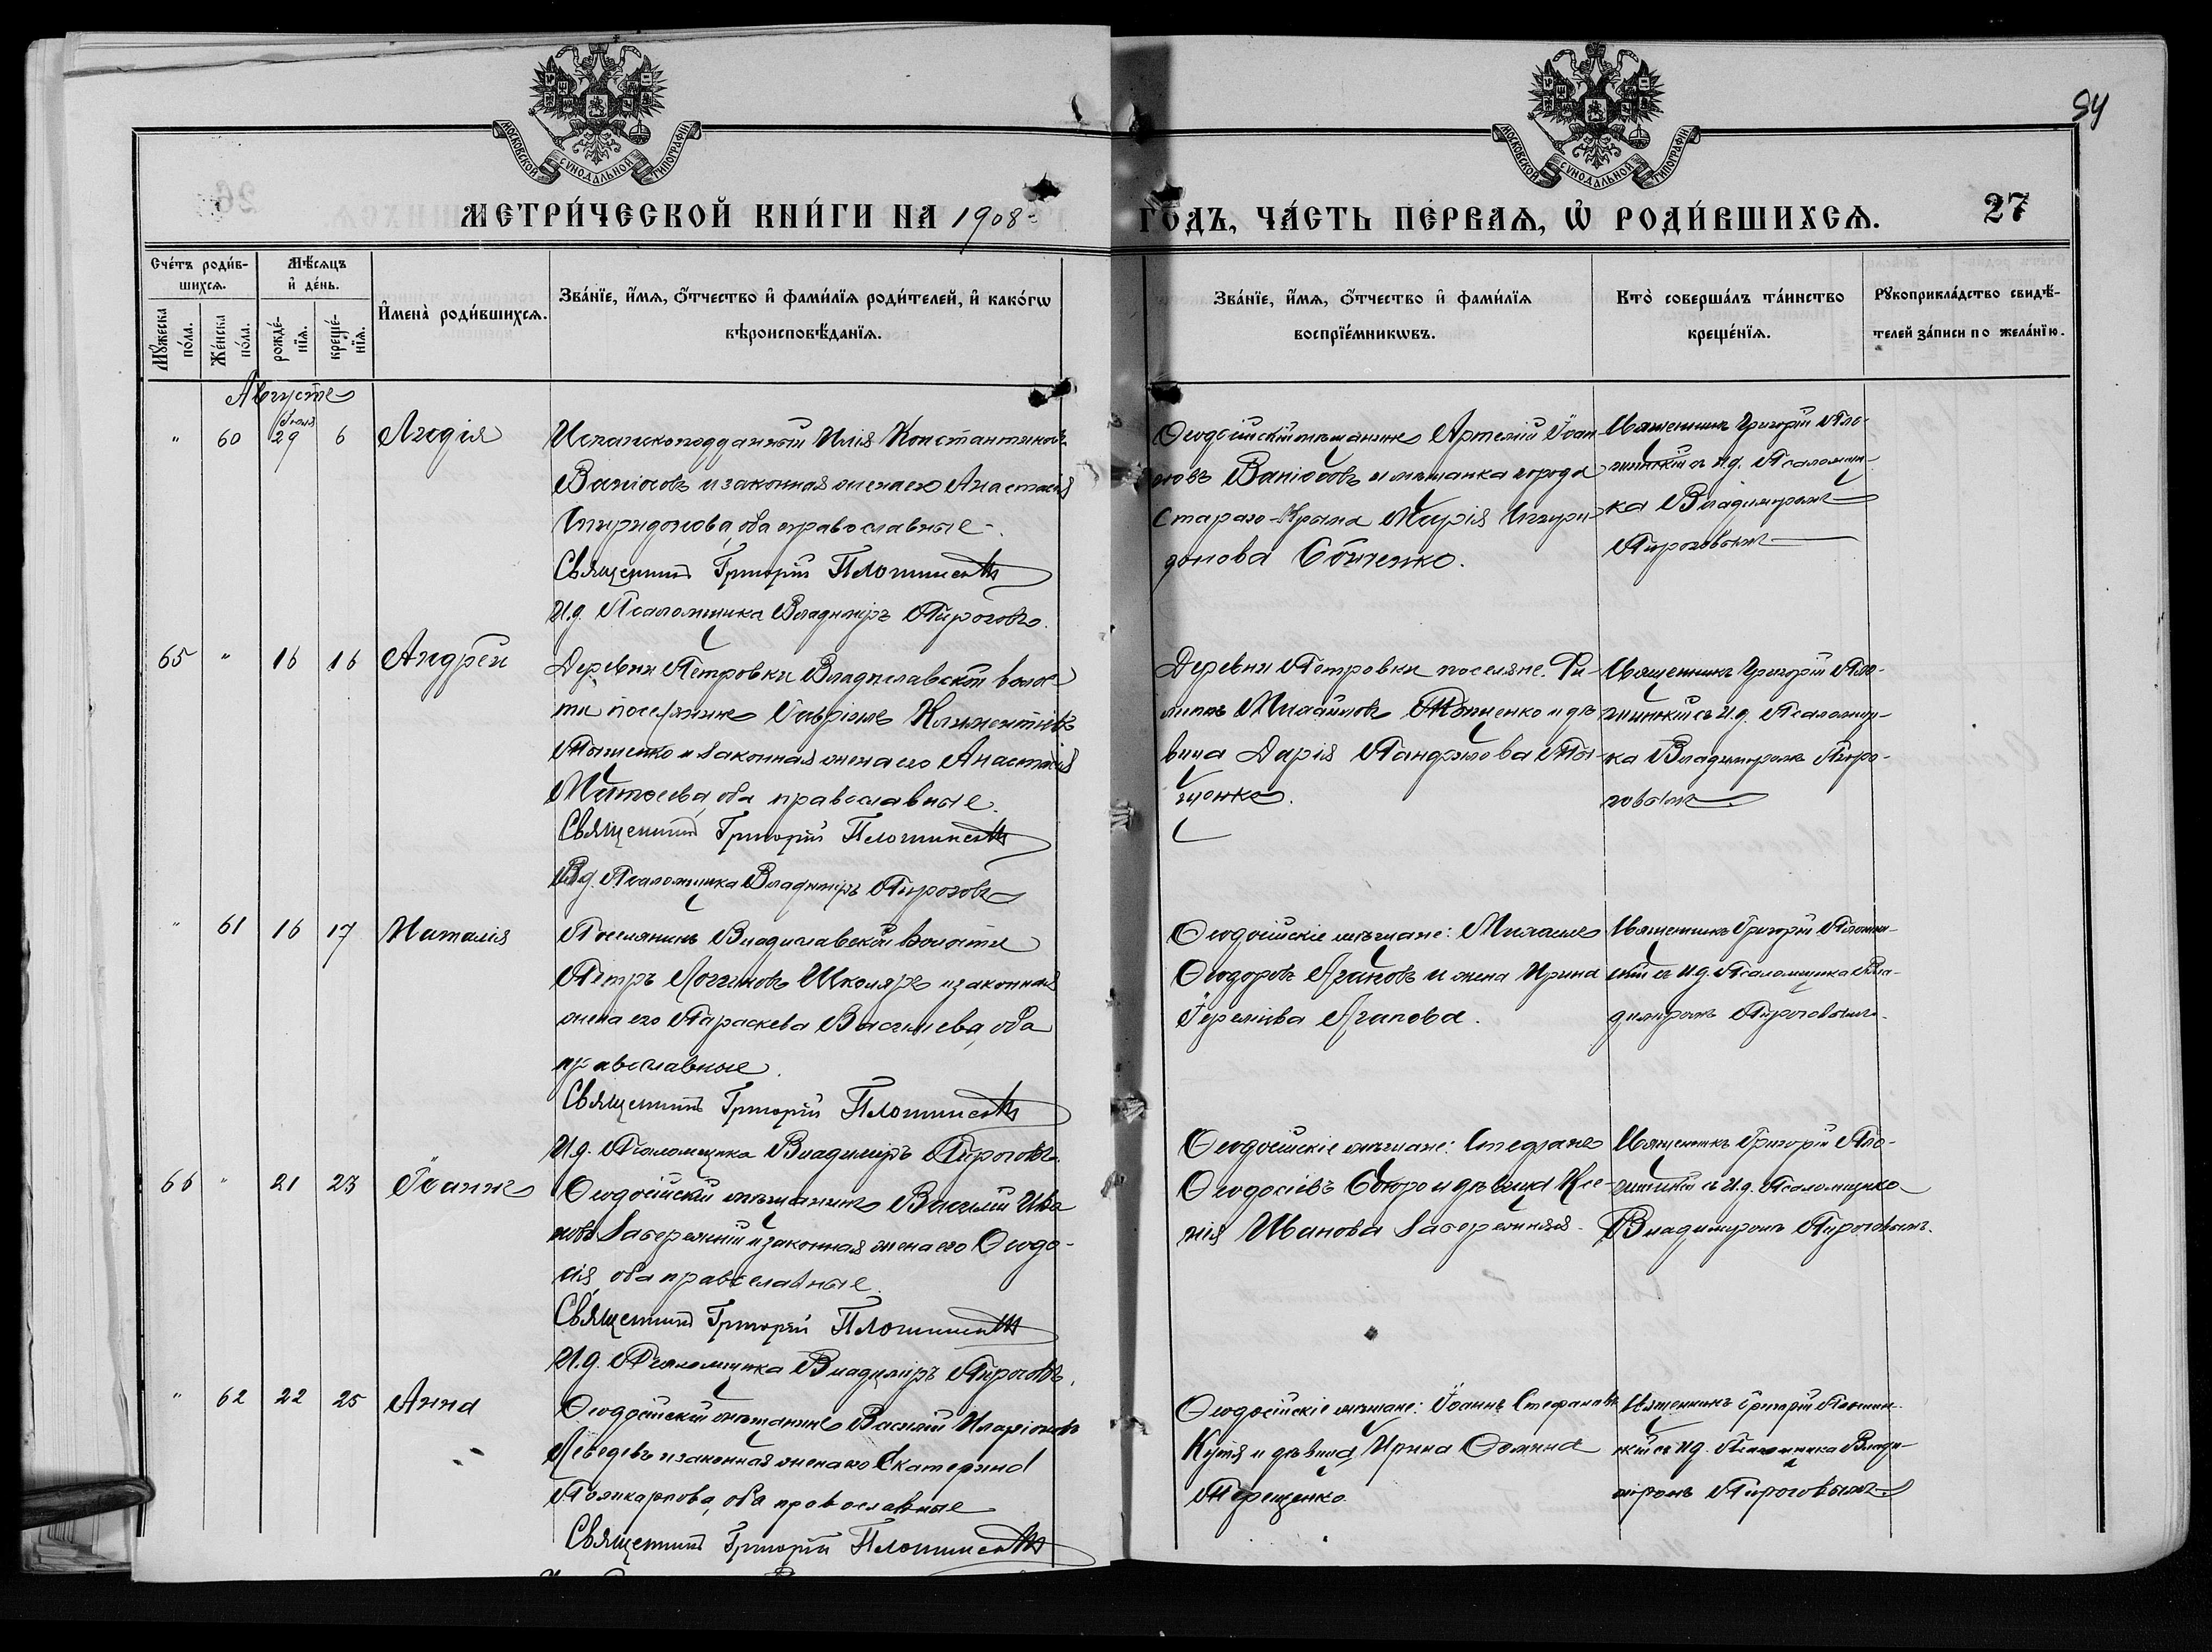 94
МОСКОВСКОЙ СѴНОДАЛЬНОЙ ТИПОГРАФІИ
МОСКОВСКОЙ СѴНОДАЛЬНОЙ ТИПОГРАФІИ
МЕТРИ́ЧЕСКОЙ КНИ́ГИ НА 1908
ГО́ДЪ, ЧА́СТЬ ПЕ́РВАѦ, Ѡ҆ РОДИ́ВШИХСѦ.
27
Сче́тъ роди́в-
шихсѧ.
Мꙋ́жеска по́ла.
Же́нска по́ла.
Мѣ́сѧцъ
и҆ де́нь.
рожде́-
нїѧ.
креще́-
нїѧ.
И҆мена̀ роди́вшихсѧ.
Зва́нїе, и҆́мѧ, ѻ҆́тчество и҆ фами́лїѧ роди́телей, и҆ како́гѡ
вѣроисповѣ́данїѧ.
Зва́нїе, и҆́мѧ, ѻ҆́тчество и҆ фами́лїѧ
воспрїе́мникѡвъ.
Кто̀ соверша́лъ та́инство
креще́нїѧ.
Рꙋкоприкла́дство свидѣ́-
телей за́писи по жела́нїю.
Августъ
" 60 Іюля 29 6 Лидія
Испанскоподданный Илія Константиновъ
и законная жена его Анастасія
Спиридонова, оба православные.
Священникъ Григорій
И.д. Псаломщика Владиміръ Пироговъ.
Ѳеодосійскій мѣщанинъ Артемій Іоан-
новъ и мѣщанка города
Стараго-Крыма Марія Спири-
донова
Священникъ Григорій
съ и.д. Псаломщи-
ка Владиміромъ
Пироговымъ
65 " 16 16 Андрей
Деревни Петровки Владиславской волос-
ти поселянинъ Гавріилъ Климентіевъ
и законная жена его Анастасія
Матѳеева, оба православные.
Священникъ Григорій
И.д. Псаломщика Владиміръ Пироговъ
Деревни Петровки поселяне: Фи-
липпъ Михайловъ и дѣ-
вица Дарія
Священникъ Григорій
съ и.д. Псаломщи-
ка Владиміромъ Пиро-
говымъ
" 61 16 17 Наталія
Поселянинъ Владиславской волости
Петръ Логгиновъ Школяръ и законная
жена его Параскева Васильева, оба
православные.
Священникъ Григорій
И.д. Псаломщика Владиміръ Пироговъ.
Ѳеодосійскіе мѣщане: Михаилъ
Ѳеодоровъ Агаповъ и жена Ирина
Іереміева Агапова.
Священникъ Григорій
съ и.д. Псаломщика Вла-
диміромъ Пироговымъ.
66 " 21 23 Іоаннъ
Ѳеодосійскій мѣщанинъ Василій Ива-
новъ и законная жена его Ѳеодо-
сія, оба православные.
Священникъ Григорій
И.д. Псаломщика Владиміръ Пироговъ.
Ѳеодосійскіе мѣщане: Стефанъ
Ѳеодосіевъ и дѣвица Ксе-
нія Иванова
Священникъ Григорій
съ и.д. Псаломщика
Владиміромъ Пироговымъ.
" 62 22 25 Анна
Ѳеодосійскій мѣщанинъ Василій Иларіоновъ
Лебедевъ и законная жена его Екатерина
Поликарпова, оба православные
Священникъ Григорій
Ѳеодосійскіе мѣщане: Іоаннъ Стефановъ
Кутя и дѣвица Ирина Ѳомина
Терещенко.
Священникъ Григорій
съ и.д. Псаломщика Влади-
міромъ Пироговымъ